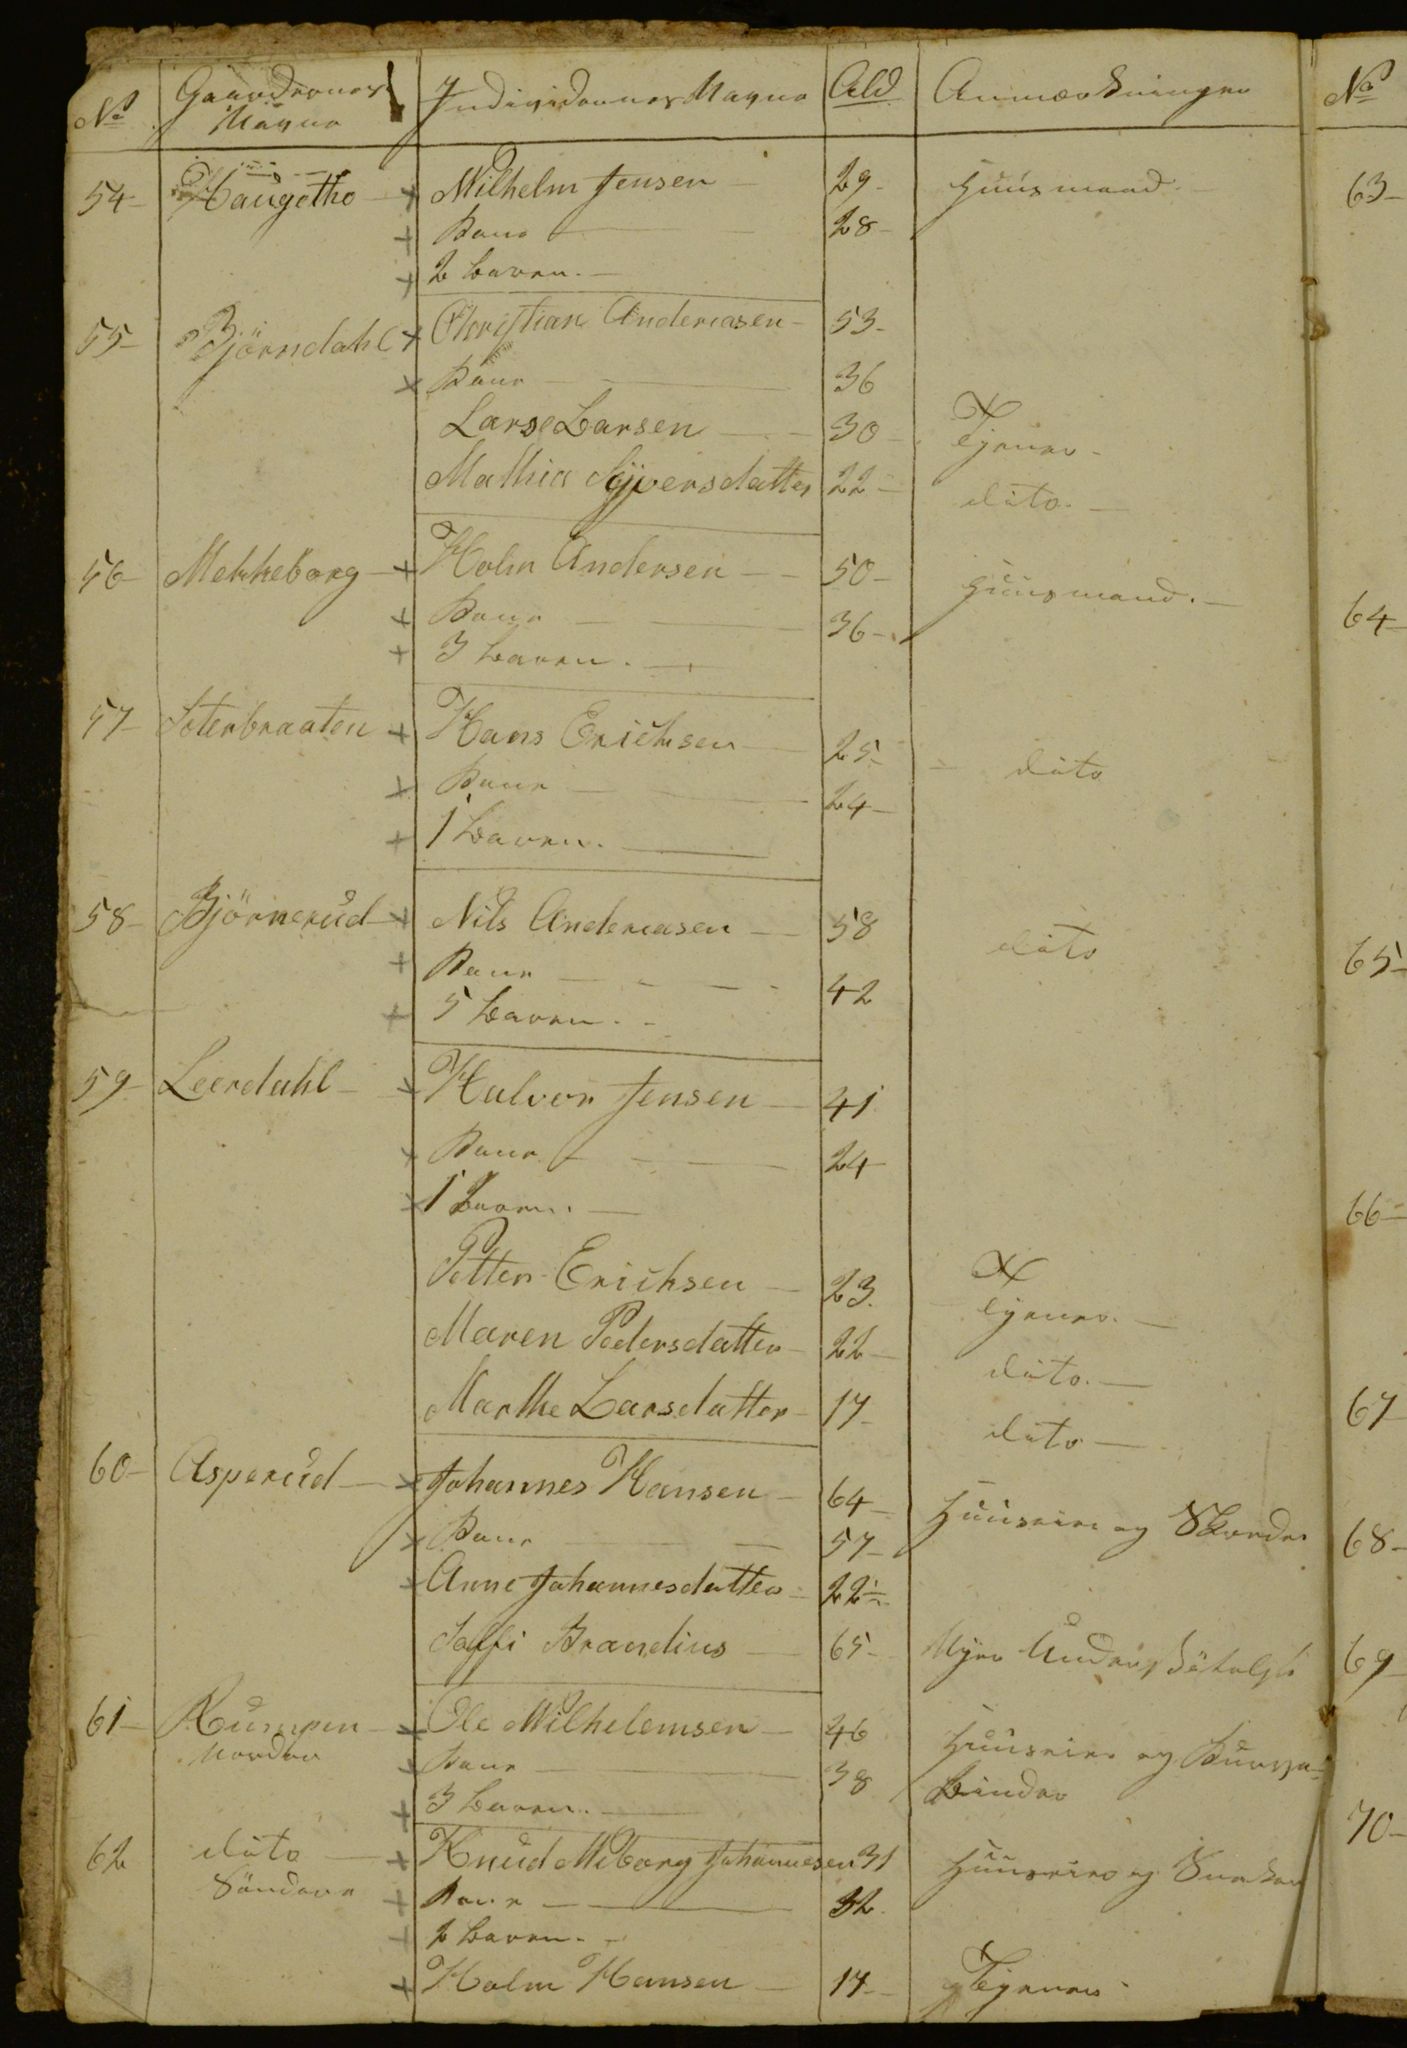 No Gaardernes Navne Individernes Navne Ald Anmærkninger No
54- Haugetho + Wilhelm Jensen 29- Huusmand. 63-
+ Kone 28-
+ 2 Børn.
55- Björndahl + Christian Andersasen 53-
+ Kone 36
Lars Larsen 30- Tjener
Mathia Syversdatter 22- dito.
56- Mehheborg + Holm Andersen 50- Huusmand.
+ Kone 36- 64-
+ 3 Børn.
57- Seterbraaten + Hans Erichsen 25- dito
+ Kone 24-
+ 1 Børn.
58- Björnerud + Nils Andersasen 58 dito
+ Kone 42 65-
+ 5 Børn.
59- Leerdahl + Halvor Jensen 41
+ Kone 24
+ 1 Børn. 66-
Petter Erichsen 23. Tjener.
Maren Pedersdatter 22- dito.
Marthe Larsdatter 17- dito 67-
60- Asperud + Johannes Hansen 64- Huuseier og Skræder
+ Kone 57- 68-
+ Anne Johannesdatter 22-
Soffi Brandius 65- Nyder Understöttelse 69-
61- Rumpen + Ole Wilhelemsen 46 Huuseier og
Nordre + Kone 38 Binder
+ 3 Børn.
62 dito + Knud Wiborg Johannesen 31 Huuseier og Snedker 70-
Söndere + Kone 32.
+ 2 Børn.
+ Holm Hansen 17- Tjener